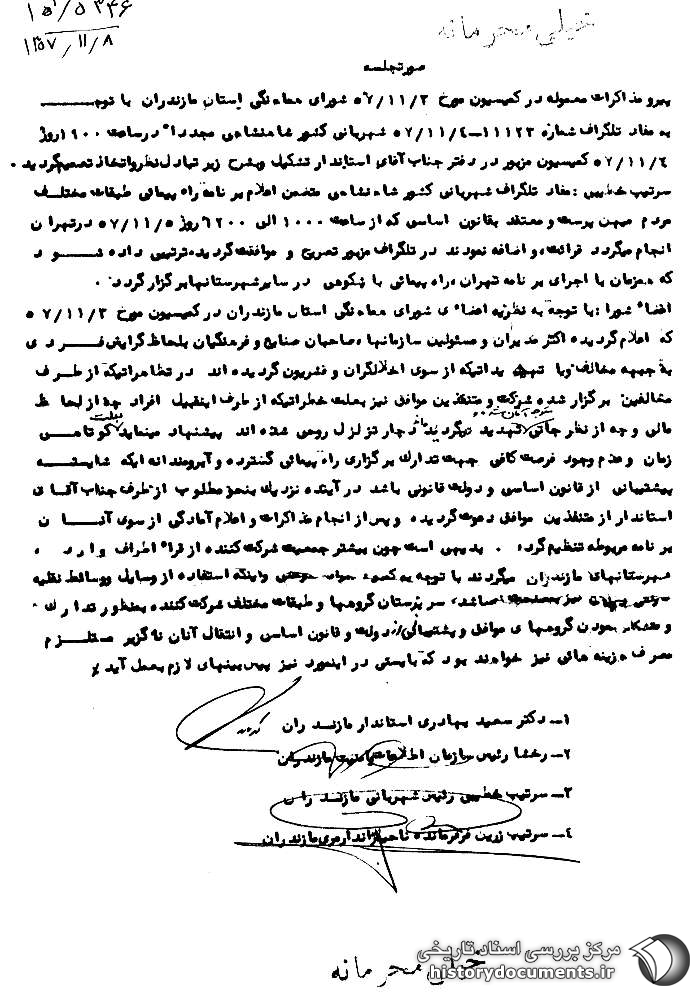 ۱۵/۵۳۴۶
۱۳۵۷/۱۱/۸
خیلی محرمانه
صورتجلسه
پیرو مذاکرات معموله در کمیسیون مورخ ۵۷/۱۱/۳ شورای هماهنگی استان مازندران با توجه
به مفاد تلگراف شماره ۱۱۱۲۳-۵۷/۱۱/۴ شهربانی کشور شاهنشاهی مجددا در ساعت ۱۹۰۰ روز
۵۷/۱۱/۴ کمیسیون مزبور در دفتر جناب آقای استاندار تشکیل و بشرح زیر تبادل نظر و اتخاذ تصمیم گردید.
سرتیپ خطیبی: مفاد تلگراف شهربانی کشور شاهنشاهی متضمن اعلام برنامه راه پیمائی طبقات مختلف
مردم میهن پرست و معتقد بقانون اساسی که از ساعت ۱۰۰۰ الی ۱۲۰۰ روز ۵۷/۱۱/۵ در تهران
انجام میگردد قرائت، و اضافه نمودند در تلگراف مزبور تصریح و موافقت گردیده، ترتیبی داده شود
که همزمان با اجرای برنامه تهران، راه پیمائی با شکوهی در سایر شهرستانها برگزار گردد.
اعضاء شورا: با توجه به نظریه اعضای شورای هماهنگی استان مازندران در کمیسیون مورخ ۵۷/۱۱/۳
که اعلام گردیده اکثر مدیران و مسئولین سازمانها، صاحبان صنایع و فرهنگیان بلحاظ گرایش فردی
به جبهه مخالف و یا تهدیداتیکه از سوی اخلالگران و قشریون گردیده اند در تظاهراتیکه از طرف
مخالفین برگزار شده شرکت و متنفذین موافق نیز بعلت خطراتیکه از طرف اینقبیل افراد چه از لحاظ
مالی و چه از نظر جانی تهدید میگردیدند دچار تزلزل روحی شده اند پیشنهاد مینماید بعلت کوتاهی
زمان و عدم وجود فرصت کافی جهت تدارک برگزاری راه پیمائی گسترده و آبرومندانه ایکه شایسته
پشتیبانی از قانون اساسی و دولت قانونی باشد در آینده نزدیک بنحو مطلوب از طرف جناب آقای
استاندار از متنفذین موافق دعوت گردیده و پس از انجام مذاکرات و اعلام آمادگی از سوی آنان
برنامه مربوطه تنظیم گردد. بدیهی است چون بیشتر جمعیت شرکت کننده از قراء اطراف وارد
شهرستانهای مازندران میگردند با توجه به کمبود مواد سوختی و اینکه استفاده از وسایل و وسائط نقلیه
نیز باشد، سرپرستان گروهها و طبقات مختلف شرکت کننده بمنظور تدارک
و متشکل نمودن گروههای موافق و پشتیبانی از دولت و قانون اساسی و انتقال آنان ناگزیر مستلزم
مصرف هزینه هائی نیز خواهند بود که بایستی در اینمورد نیز پیش بینیهای لازم بعمل آید
۱- دکتر سعید بهادری استاندار مازندران
۲- رخشا رئیس سازمان اطلاعات و امنیت مازندران
۳- سرتیپ خطیبی رئیس شهربانی مازندران
۴- سرتیپ زرین فر فرمانده ناحیه ژاندارمری مازندران
خیلی محرمانه
مرکز بررسی اسناد تاریخی
historydocuments.ir